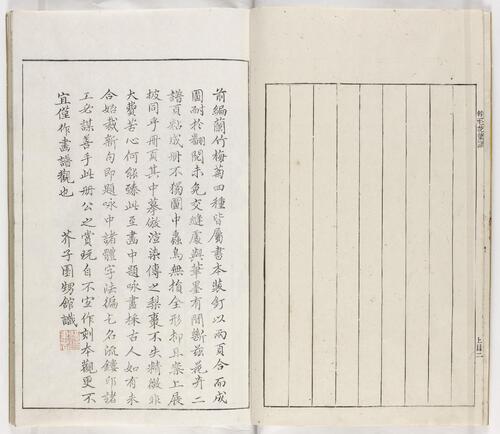 前編蘭竹梅菊四種皆屬書本裝釘以兩頁合而成
圖耐於翻閱未免交縫處與筆墨有間斷兹花卉二
譜頁粘成册不獨圖中蟲鳥無損全形抑且案上展
披同乎册頁其中摹倣渲染傳之梨棗不失精微非
大費苦心何能臻此至畫中題咏畫採古人如有未
合始裁新句即題咏中諸體字法徧乞名流鏤印諸
工必謀善手此册公之賞玩自不宜作刻本觀更不
宜僅作畫譜觀也
芥子園甥館識
翎毛花卉譜
上册二